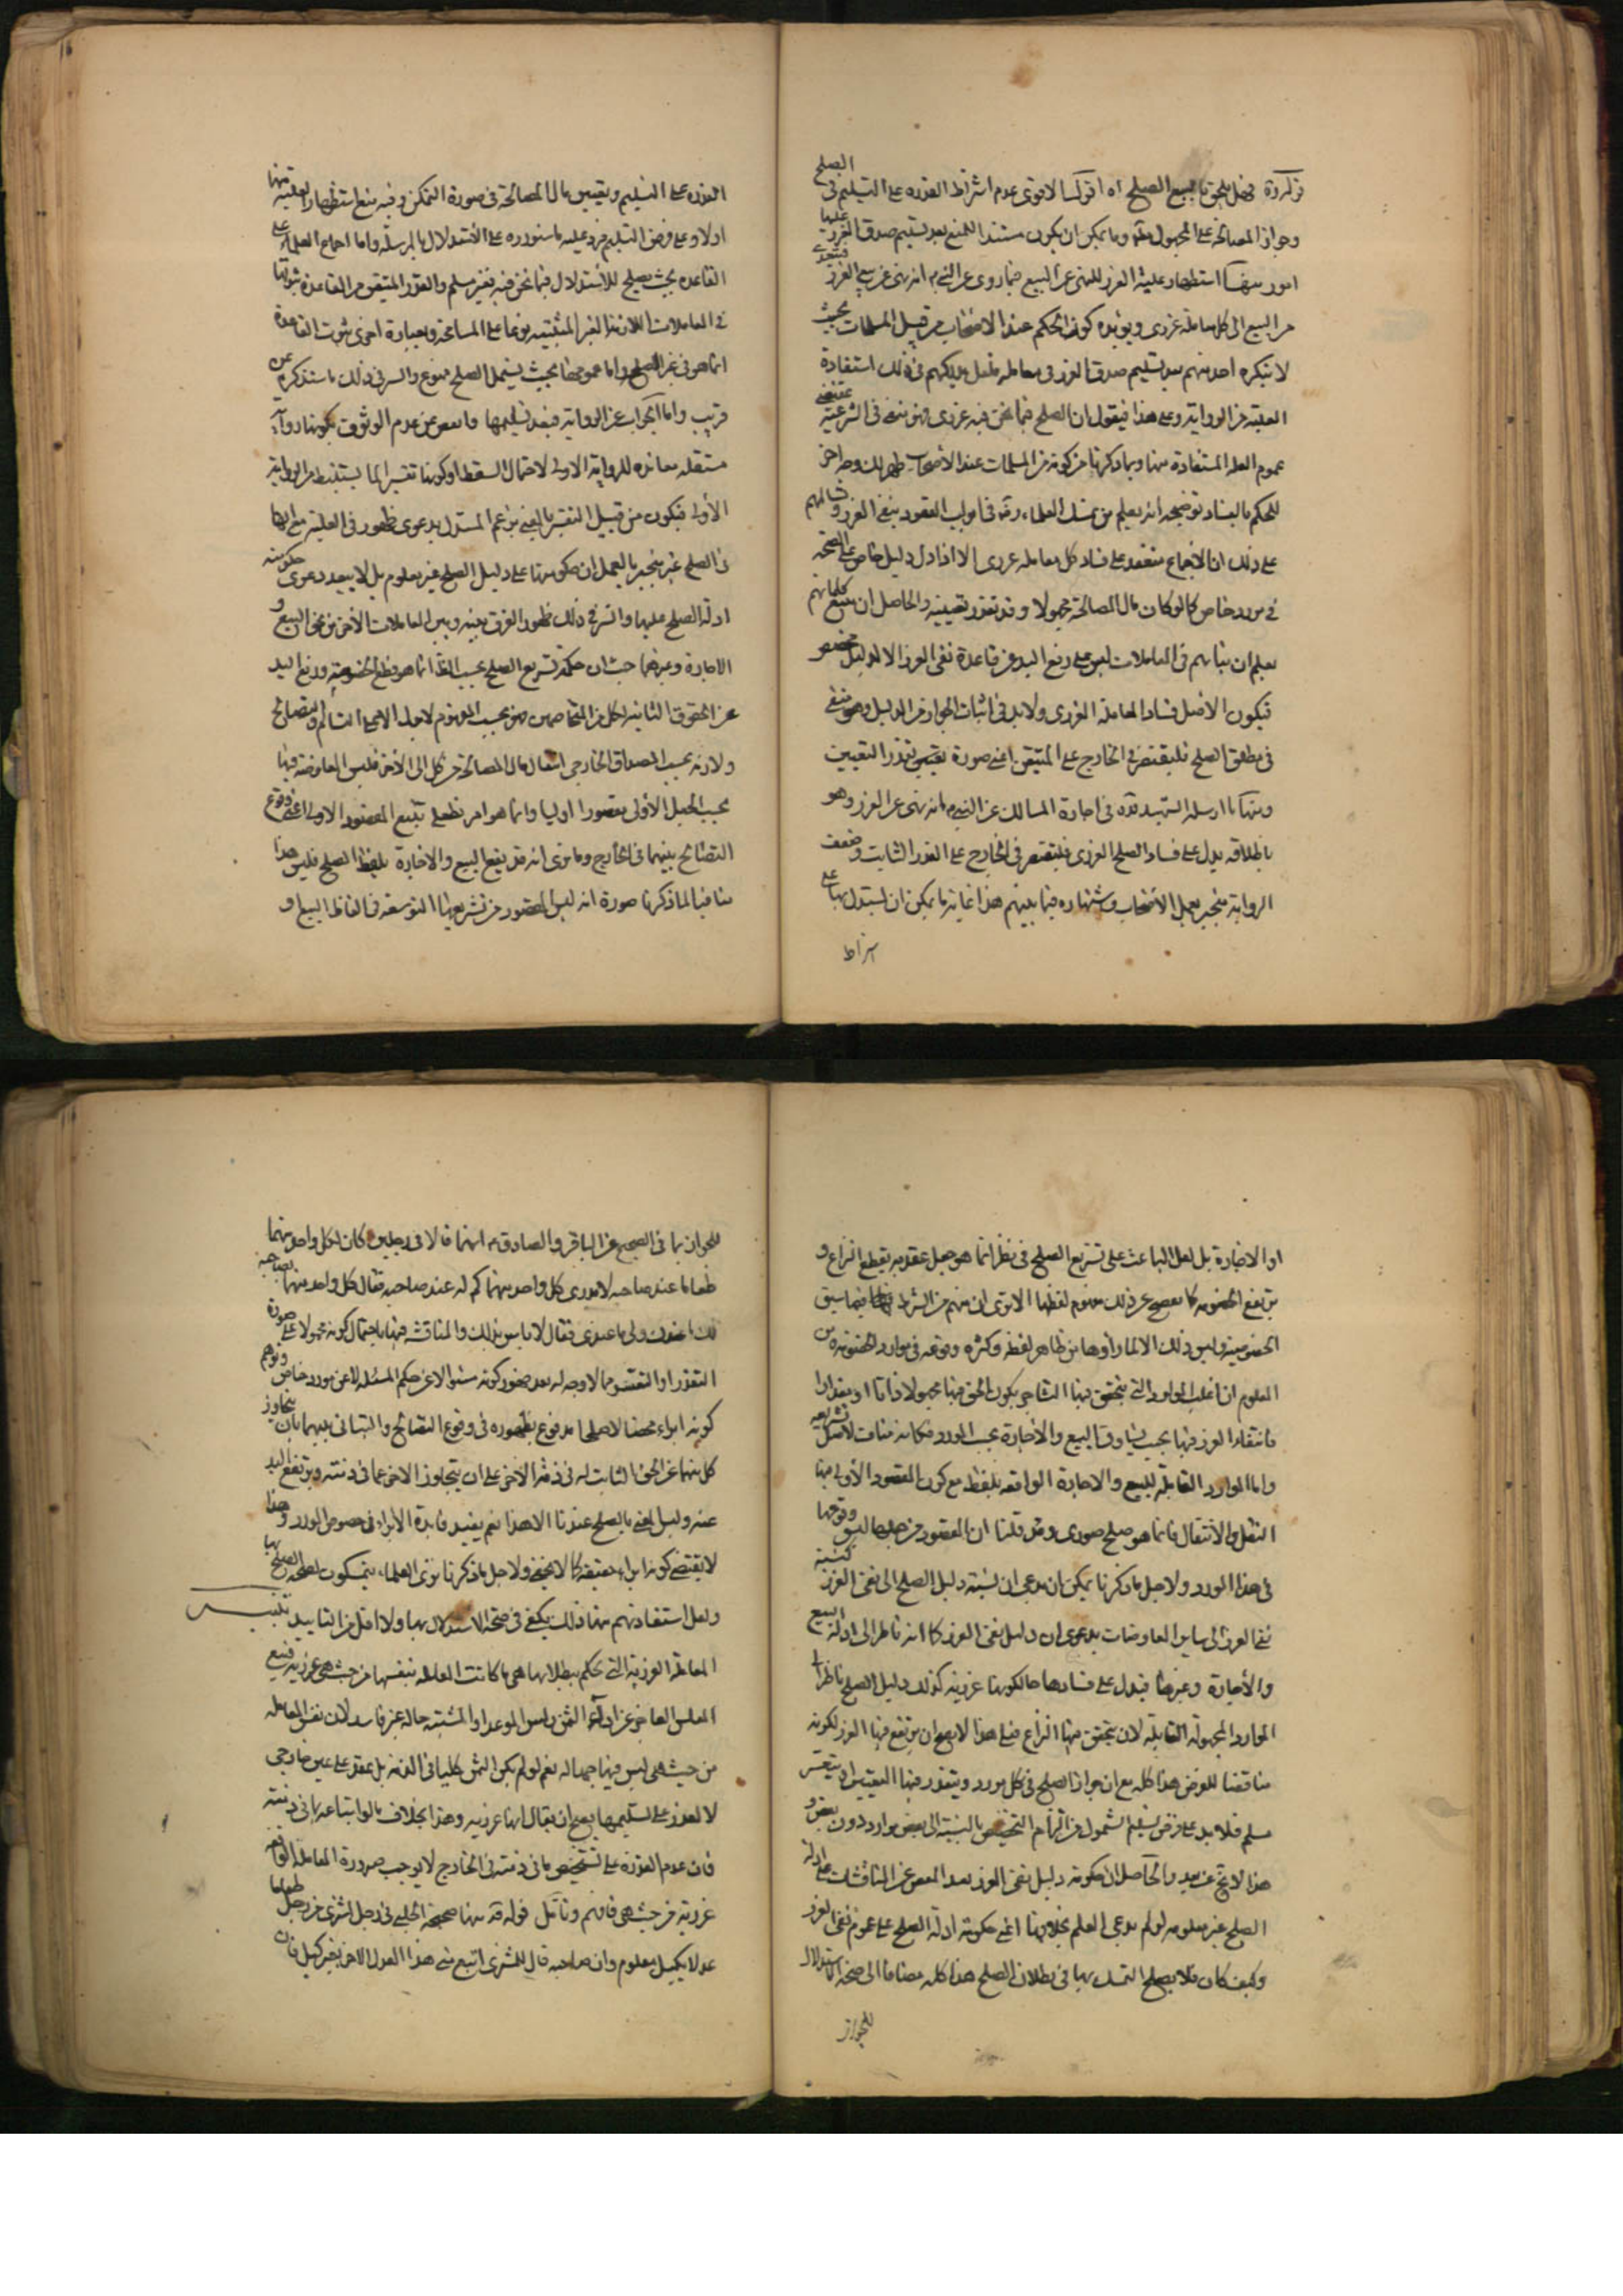 قوله قده فصل يلحق بالبيع الصلح اه اقول الاقوى عدم اشتراط القدرة على التسليم فى الصلح
وجواز المصالحة على المجهول وما يمكن ان يكون مستندا للمنع بعد تسليم صدق الغرر عليها
امور منها استظهار علية الغرر للنهى عن البيع فيما روى عن النبى انه نهى عن بيع الغرر فيتعدى
من البيع الى كل معاملة غررى ويؤيده كون الحكم عند الاصحاب من قبيل المسلمات بحيث
لا ينكره احد منهم بعد تسليم صدق الغرر فى معاملة فى ذلك استفادة
العلية من الرواية وعلى هذا فيقول ان الصلح فيما نحن فيه غررى فهو منفى فى الشرعية بمقتضى
عموم العلة المستفادة منها وبما ذكرنا من كونه من المسلمات عند الأصحاب ظهر لك وجه اخر
للحكم بالفساد توضيحه انه يعلم من تمسك العلماء فى ابواب العقود بنفى الغرر
على ذلك ان الاجماع منعقد على فساد كل معاملة غررى الا اذا دل دليل خاص على الصحة
فى مورد خاص كما لو كان مال المصالحة مجهولا وقد تعذر تعيينه والحاصل ان بتتبع كلماتهم
يعلم ان بنائهم فى المعاملات ليس على رفع اليد عن قاعدة نفى الغرر الا لدليل مخصص
فيكون الأصل فساد المعاملة الغررى ولا بد فى اثبات الجواز من الدليل وهو منتفى
فى مطلق الصلح فليقتصر فى الخارج على المتيقن اعنى صورة تعذر التعيين
ومنها ما ارسله الشهيد قده فى اجارة المسالك عن النبى انه نهى عن الغرر وهو
باطلاقه يدل على فساد الصلح الغررى فليقتصر فى الخارج على القدر الثابت وضعف
الرواية منجبر بعمل الأصحاب واشتهاره فيما بينهم هذا غاية ما يمكن ان يستدل بها على
اشتراط
القدرة على التسليم وتعيين مال المصالحة فى صورة التمكن وفيه منع استظهار العلية منها
اولا وعلى فرض التسليم فيرد عليه ما سنورده على الاستدلال بالمرسلة واما اجماع العلماء على
القاعدة بحيث يصلح للاستدلال فيما نحن فيه فغير مسلم والقدر المتيقن من القاعدة ثبوتها
فى المعاملات اللازمة الغير المبتنية نوعا على المسامحة وبعبارة اخرى ثبوت القاعدة
انما هو فى غير الصلح واما عمومها بحيث يشمل الصلح ممنوع والسر فى ذلك ما سنذكره عن
قريب واما الجواب عن الرواية فبعد تسليمها والغمض عن عدم الوثوق بكونها رواية
مستقله مغايره للرواية الاولى لاحتمال السقط او كونها تفسيرا لما يستنبط من الرواية
الأولى فيكون من قبيل التفسير بالمعنى بزعم المستدل بدعوى ظهور فى العلية مع انها
فى الصلح غير منجبر بالعمل ان حكومتها على دليل الصلح غير معلوم بل لا يبعد دعوى حكومة
ادلة الصلح عليها والسر فى ذلك ظهور الفرق بينه وبين المعاملات الأخر من نحو البيع و
الاجارة وغيرهما حيث ان حكمة تشريع الصلح بحسب الظ انما هو قطع الخصومة ورفع اليد
عن الحقوق الثابتة لكل من المتخاصمين فهو بحسب المفهوم لا يدل الا على التسالم والتصالح
ولازمه بحسب المصداق الخارجى انتقال مال المصالحة من كل الى الأخر فليس المعاوضة فيها
بحسب الجعل الأولى مقصورا اوليا وانما هو امر قطعى بتبع المقصود الاولى اعنى وقوع
التصالح بينهما فى الخارج وما نرى انه قد يقع البيع والاجارة بلفظ الصلح فليس هذا
منافيا لما ذكرنا ضرورة انه ليس المقصود من تشريعها التوسعة فى الفاظ البيع و
او الاجارة بل لعل الباعث على تشريع الصلح فى نظر انما هو جعل عقد به يقطع النزاع و
يرتفع الخصومة كما يفصح عن ذلك مفهوم لفظها الا ترى ان منهم من اشترط فيها سبق
الخصومة وليس ذلك الا لما راوها من ظاهر لفظه وكثرة وقوعه فى موارد الخصومة ومن
المعلوم ان اغلب الموارد التى يتحقق فيها التشاجر يكون الحق فيها مجهولا ذاتا او مقدارا
فانتفاء الغرر فيها بحيث يساوق البيع والاجارة بحسب المورد فكانه مناف لأصل تشريعه
واما الموارد القابلة للبيع والاجارة الواقعة بلفظه مع كون المقصود الأولى منها
النقل والانتقال فانما هو صلح صورى وقد قلنا ان المقصود من جعلها ليس وقوعها
فى هذا المورد ولاجل ما ذكرنا يمكن ان يدعى ان نسبة دليل الصلح الى نفى الغرر كنسبة
نفى الغرر الى ساير المعاوضات بدعوى ان دليل نفى الغرر كما انه ناظر الى ادلة البيع
والأجارة وغيرها فيدل على فسادها حالكونها غررية كذلك دليل الصلح ناظر الى
الموارد المجهولة القابلة لان يتحقق فيها النزاع فعلى هذا لا يصح ان يرتفع فيها الغرر لكونه
مناقضا للغرض هذا كله مع ان جواز الصلح فى كل مورد ويتعذر فيها التعيين او يتعسر
مسلم فلا بد على فرض تسليم الشمول من التزام التخصيص بالنسبة الى بعض موارد دون بعض و
هذا لا يخ عن بعد والحاصل ان حكومة دليل نفى الغرر بعد الغمض عن المناقشات على ادلة
الصلح غير معلومه لو لم يدعى العلم بخلافها اعنى حكومة ادلة الصلح على عموم نفى الغرر
وكيف كان فلا يصلح التمسك بها فى بطلان الصلح هذا كله مضافا الى صحة الاستدلال
للجواز
للجواز بما فى الصحيح عن الباقر والصادق انهما قالا فى رجلين كان لكل واحد منهما
طعاما عند صاحبه لا يدرى كل واحد منهما كم له عند صاحبه فقال كل واحد منهما لصاحبه
لك ما عندك ولى ما عندى فقال لا باس بذلك والمناقشة فيها باحتمال كونه محمولا على صورة
التعذر او التعسر مما لا وجه له بعد ظهور كونه سئوالا عن حكم المسئلة لا عن مورد خاص وتوهم
كونه ابراء محضا لا صلحا مدفوع بظهوره فى وقوع التصالح والتبانى بينهما بان يتجاوز
كل منهما عن الحق الثابت له فى ذمة الأخر على ان يتجاوز الاخر عما فى ذمته ويرتفع اليد
عنه وليس المعنى بالصلح عندنا الا هذا نعم يفيد فايدة الأبراء فى خصوص المورد وهذا
لا يقتضى كونه ابراء حقيقة كما لا يخفى ولاجل ما ذكرنا نرى العلماء يتمسكون لصحة الصلح بها
ولعل استفادتهم منها ذلك يكفى فى صحة الاستدلال بها ولا اقل من التاييد تنبيه
المعاملة الغررية التى نحكم ببطلانها هى ما كانت المعاملة بنفسها من حيث هى غررية فبيع
المفلس العاجز عن اداء الثمن راس الموعد او المشتبه حاله غير فاسد لان نفس المعاملة
من حيث هى ليس فيها جهالة نعم لو لم يكن الثمن كليا فى الذمة بل عقد على عين خارجى
لا يقدر على تسليمها يصح ان يقال انها غررية وهذا بخلاف ما لو ابتاعه بما فى ذمته
فان عدم القدرة على تشخيص ما فى ذمته فى الخارج لا يوجب صيرورة المعاملة الواقعة
غررية من حيث هى فافهم وتامل قوله قده منها صحيحة الحلبى فى رجل اشترى من رجل طعاما
عدلا بكيل معلوم وان صاحبه قال للمشترى ابتع منى هذا العدل الاخر بغير كيل فان